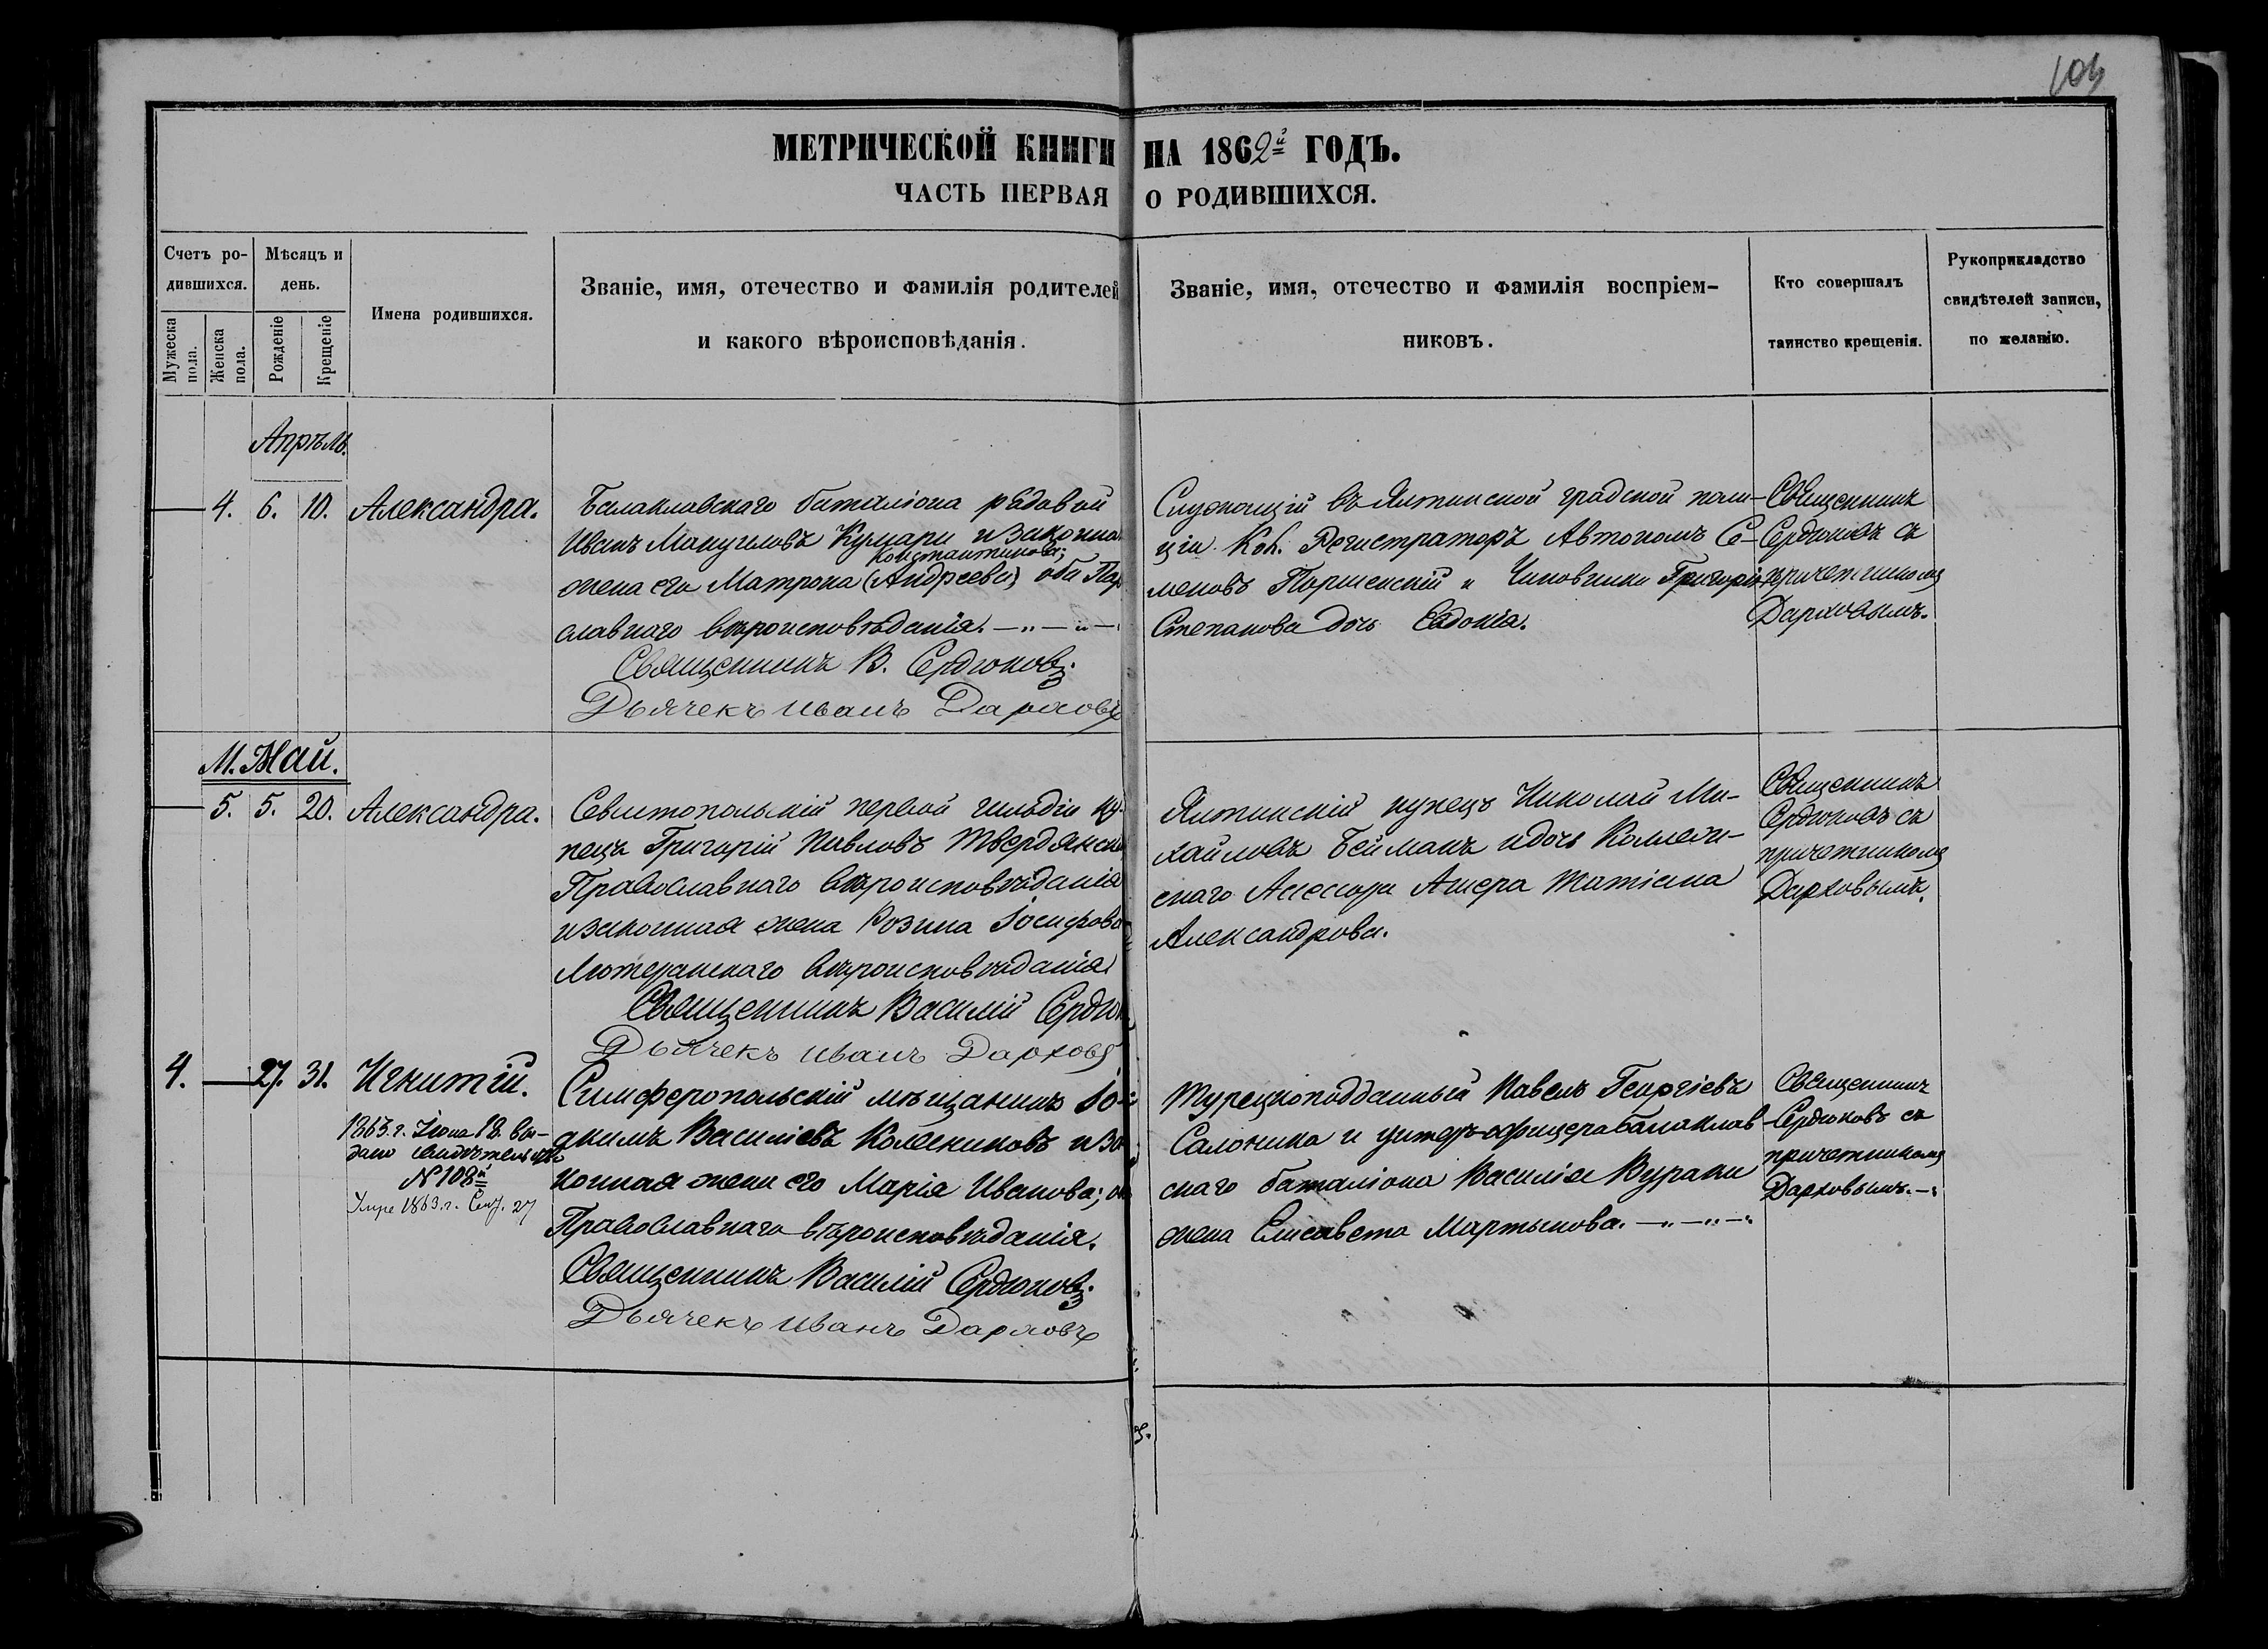 104
МЕТРИЧЕСКОЙ КНИГИ НА 1862й ГОДЪ.
ЧАСТЬ ПЕРВАЯ О РОДИВШИХСЯ.
Счетъ ро-
дившихся.
Мужеска
пола.
Женска
пола.
Мѣсяцъ и
день.
Рожденіе
Крещеніе
Имена родившихся.
Званіе, имя, отечество и фамилія родителей
и какого вѣроисповѣданія.
Званіе, имя, отечество и фамилія воспріем-
никовъ.
Кто совершалъ
таинство крещенія.
Рукоприкладство
свидѣтелей записи,
по желанію.
Апрѣль.
4. 6. 10. Александра.
Балаклавскаго баталіона рядовой
Иванъ Мануиловъ Кумари и законная
Константинова;
жена его Матрона (Андреева) оба Пра
славнаго вѣроисповѣданія.
Священникъ В. Сердюковъ.
Дьячекъ Иванъ Дарховъ
Служащій въ Ялтинской градской поли-
ціи Кол. Регистраторъ Автономъ Се-
меновъ и Чиновника Григорія
Степанова дочь Евдокія.
Священникъ
Сердюковъ съ
причетникомъ
Дарховымъ.
М. Май.
5. 5. 20. Александра.
первой гильдіи ку-
пецъ Григорій Павловъ
Православнаго вѣроисповѣданія
и законная жена Розина Іосифова
Лютеранскаго вѣроисповѣданія
Священникъ Василій Сердю
Дьячекъ Иванъ Дарховъ
Ялтинскій купецъ Николай Ми-
хайловъ Бейманъ и дочь Коллежи-
скаго Асессора Ашера Татіана
Александрова.
Священникъ
Сердюковъ съ
причетникомъ
Дарховымъ.
4. 27. 31. Игнатій.
1863. г. Іюна 18. вы-
дано свидѣтельство
№ 108й
1863. г. 27
Симферопольскій мѣщанинъ Іо-
акимъ Василіевъ Колесниковъ и за
конная жена его Марія Иванова;
Православнаго вѣроисповѣданія.
Священникъ Василій Сердюковъ.
Дьячекъ Иванъ Дарховъ
Турецкоподданный Павелъ Георгіевъ
Салоника и унтеръ-офицера Балаклав
скаго баталіона Василія Вурлаки
жена Елисавета Мартынова.
Священникъ
Сердюковъ съ
причетникомъ
Дарховымъ.